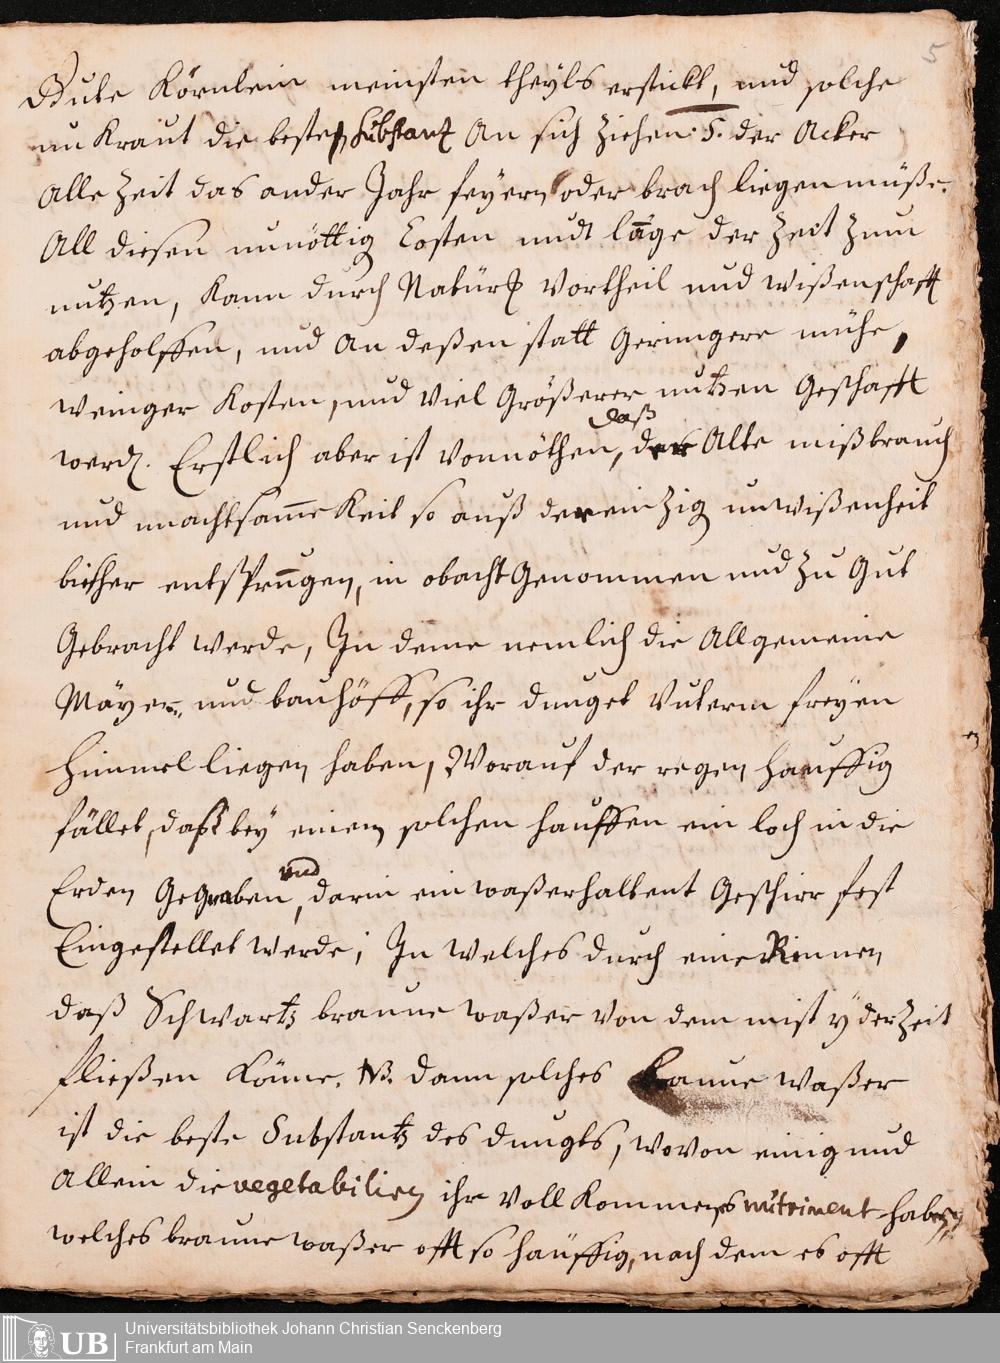 5
Gute Körnlein meinsten theyls erstickt, und solche
un Kraut die beste Substantz An sich Ziehen: 5. der Acker
Alle Zeit das ander Jahr feyern oder brach liegen müße.
All diesen unnöttig Costen undt länge der Zeit Zum
nutzen, Kann durch Natürl Vortheil und wißenschafft
abgeholffen, und An deßen statt Geringere mühe,
weniger Kosten, und Viel Größerer nutzen Geschafft
werd. Erstlich aber ist Vonnöthen, daß der Alte mißbrauch
und unachtsamme Keit so auß der einzig unwißenheit
bißher entsprungen, in obacht Genommen und Zu Gut
Gebracht werde, In deme nemlich die Allgemeine
Mäyer: und bauhöff, so ihr dunget Vnterm freyen
Himmel liegen haben, Worauf der regen Hauffig
fället, daß bey einem solchen hauffen ein loch in die
Erden GeGraben, und darin ein waßerhaltent Geschirr fest
Eingestellet werde; In welches durch eine Rinnen
daß Schwartz braune waßer von dem mist yederZeit
fließen Könne. NB. dann solches braune Waßer
ist die beste Substantz des dungts, wovon einig und
Allein die vegetabilien ihr Voll Kommenes nutriment haben,
welches braune waßer offt so häuffig, nach dem es offt
UB
Universitätsbibliothek Johann Christian Senckenberg
Frankfurt am Main